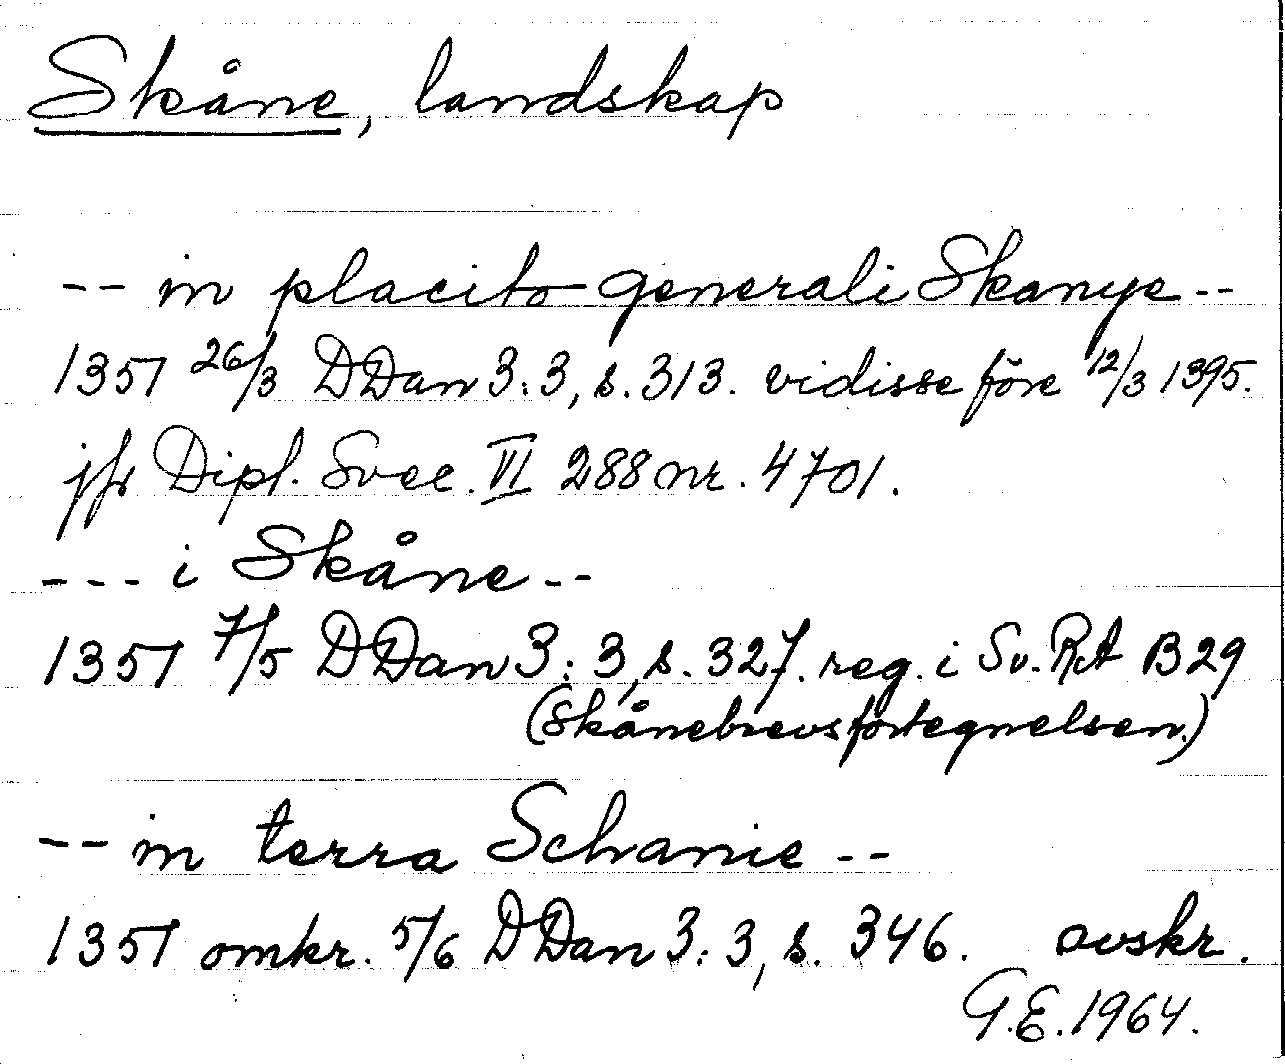 Skåne, landskap
-- in placito generali Skanye --
1351 26/3 DDan 3:3, s. 313. vidisse före 12/3 1395.
jfr Dipl. Svec. VI 288 nr. 4701.
--- i Skåne --
1351 7/5 DDan 3:3, s. 327. reg. i Sv. RA B 29
(Skånebrevsfortegnelsen.)
-- in terra Schanie --
1351 omkr. 5/6 DDan 3:3, s. 346. avskr.
G.E. 1964.